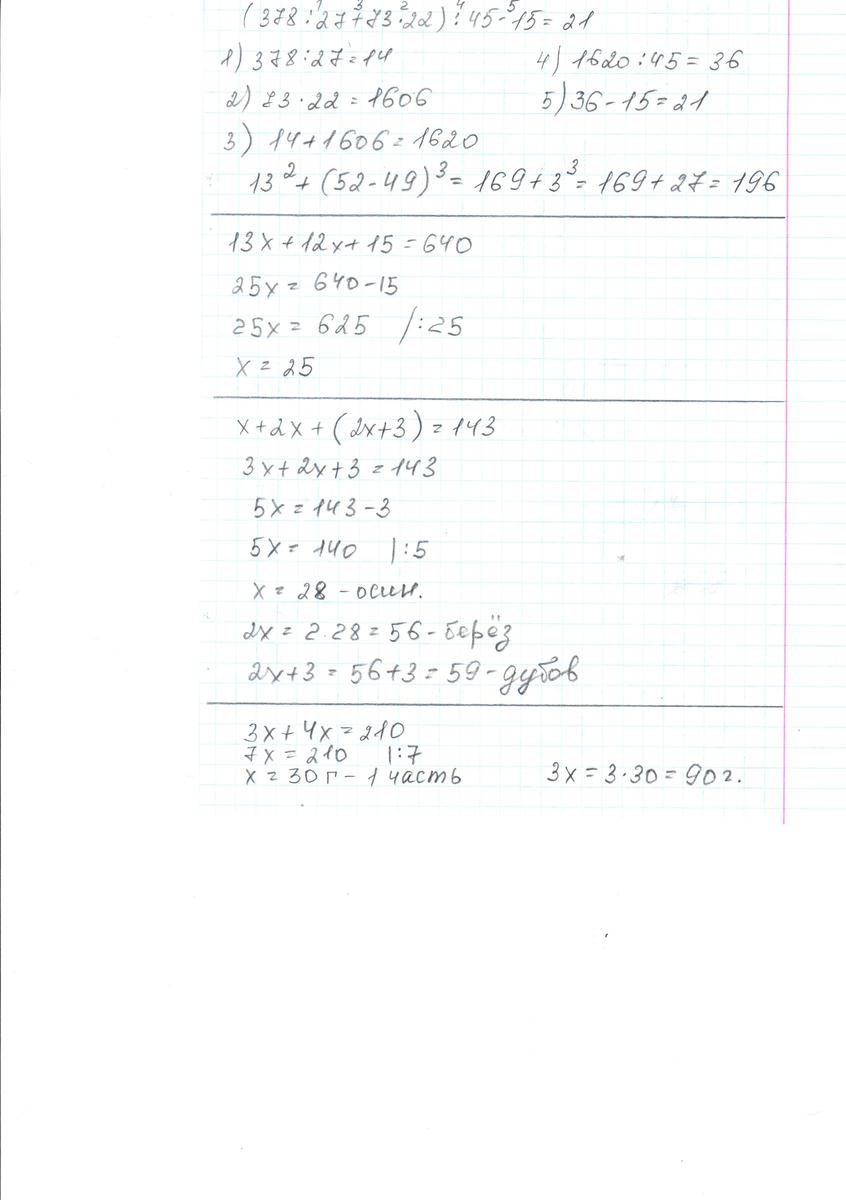 (378:27+73·22):45-15=21
1) 378:27=14
2) 73·22=1606
3) 14+1606=1620
4) 1620:45=36
5) 36-15=21
13²+(52-49)³=169+3³=169+27=196
13x+12x+15=640
25x=640-15
25x=625 /:25
x=25
x+2x+(2x+3)=143
3x+2x+3=143
5x=143-3
5x=140 |:5
x=28-осин.
2x=2·28=56-берёз
2x+3=56+3=59-дубов
3x+4x=210
7x=210 |:7
x=30г-1 часть
3x=3·30=90г.